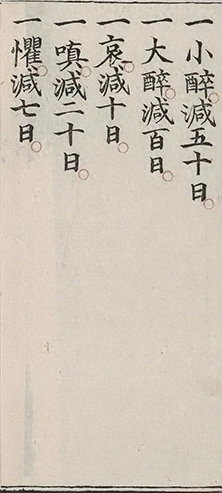 一小醉減五十日。
一大醉減百日。
一哀減十日。
一嗔減二十日。
一懼減七日。